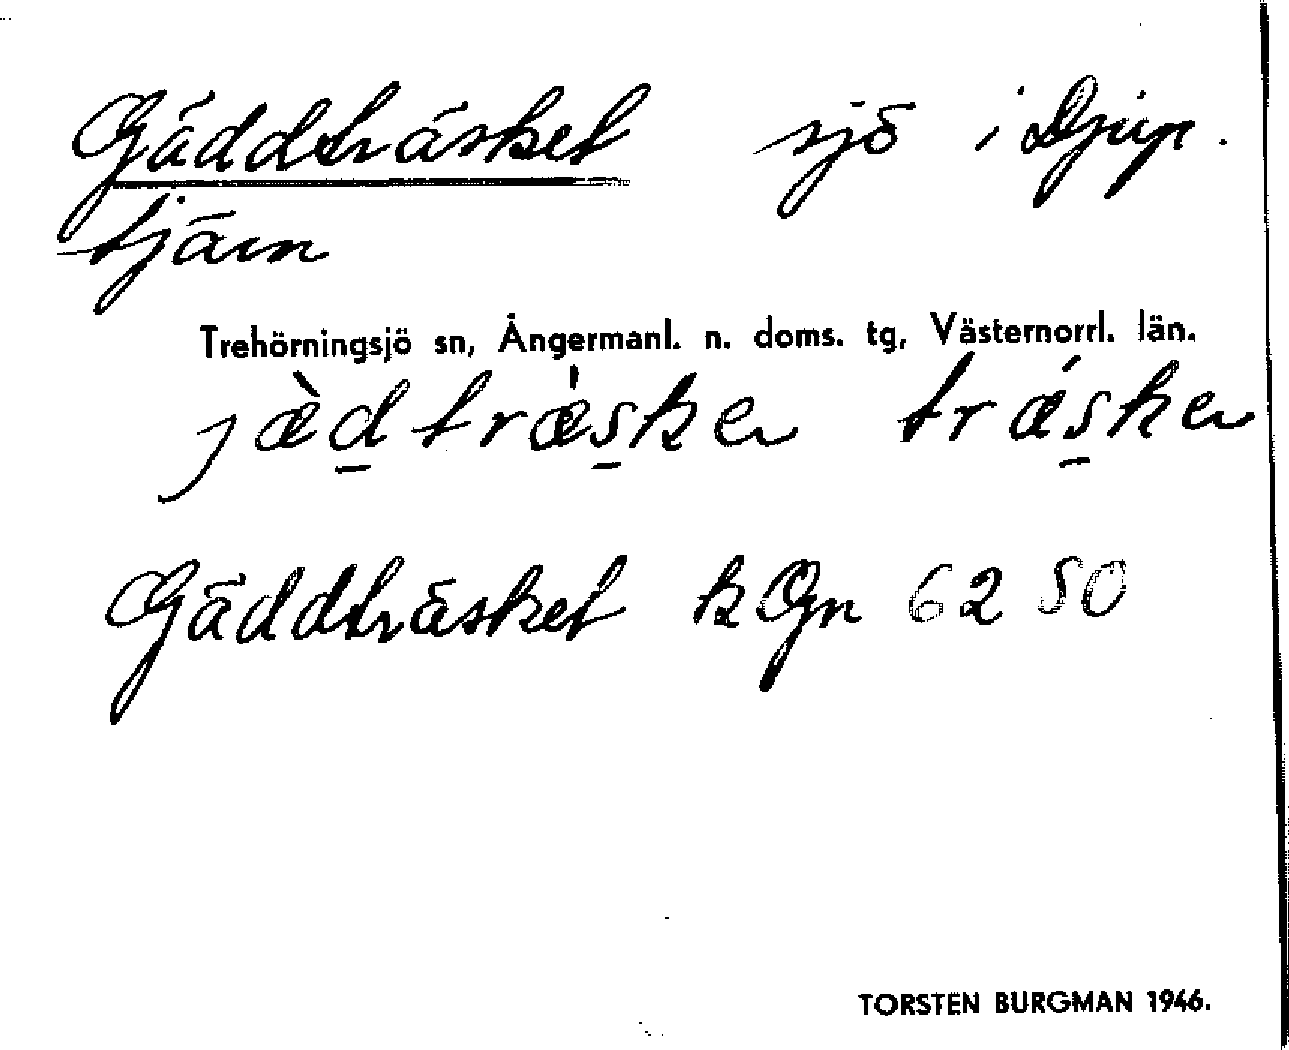 Gäddträsket sjö i Djup.
tjärn
Trehörningsjö sn, Ångermanl. n. doms. tg, Västernorrl. län.
jæ̀d̲træ̍s̲ker trǽs̲ker
Gäddträsket k Ogn 62 50
TORSTEN BURGMAN 1946.